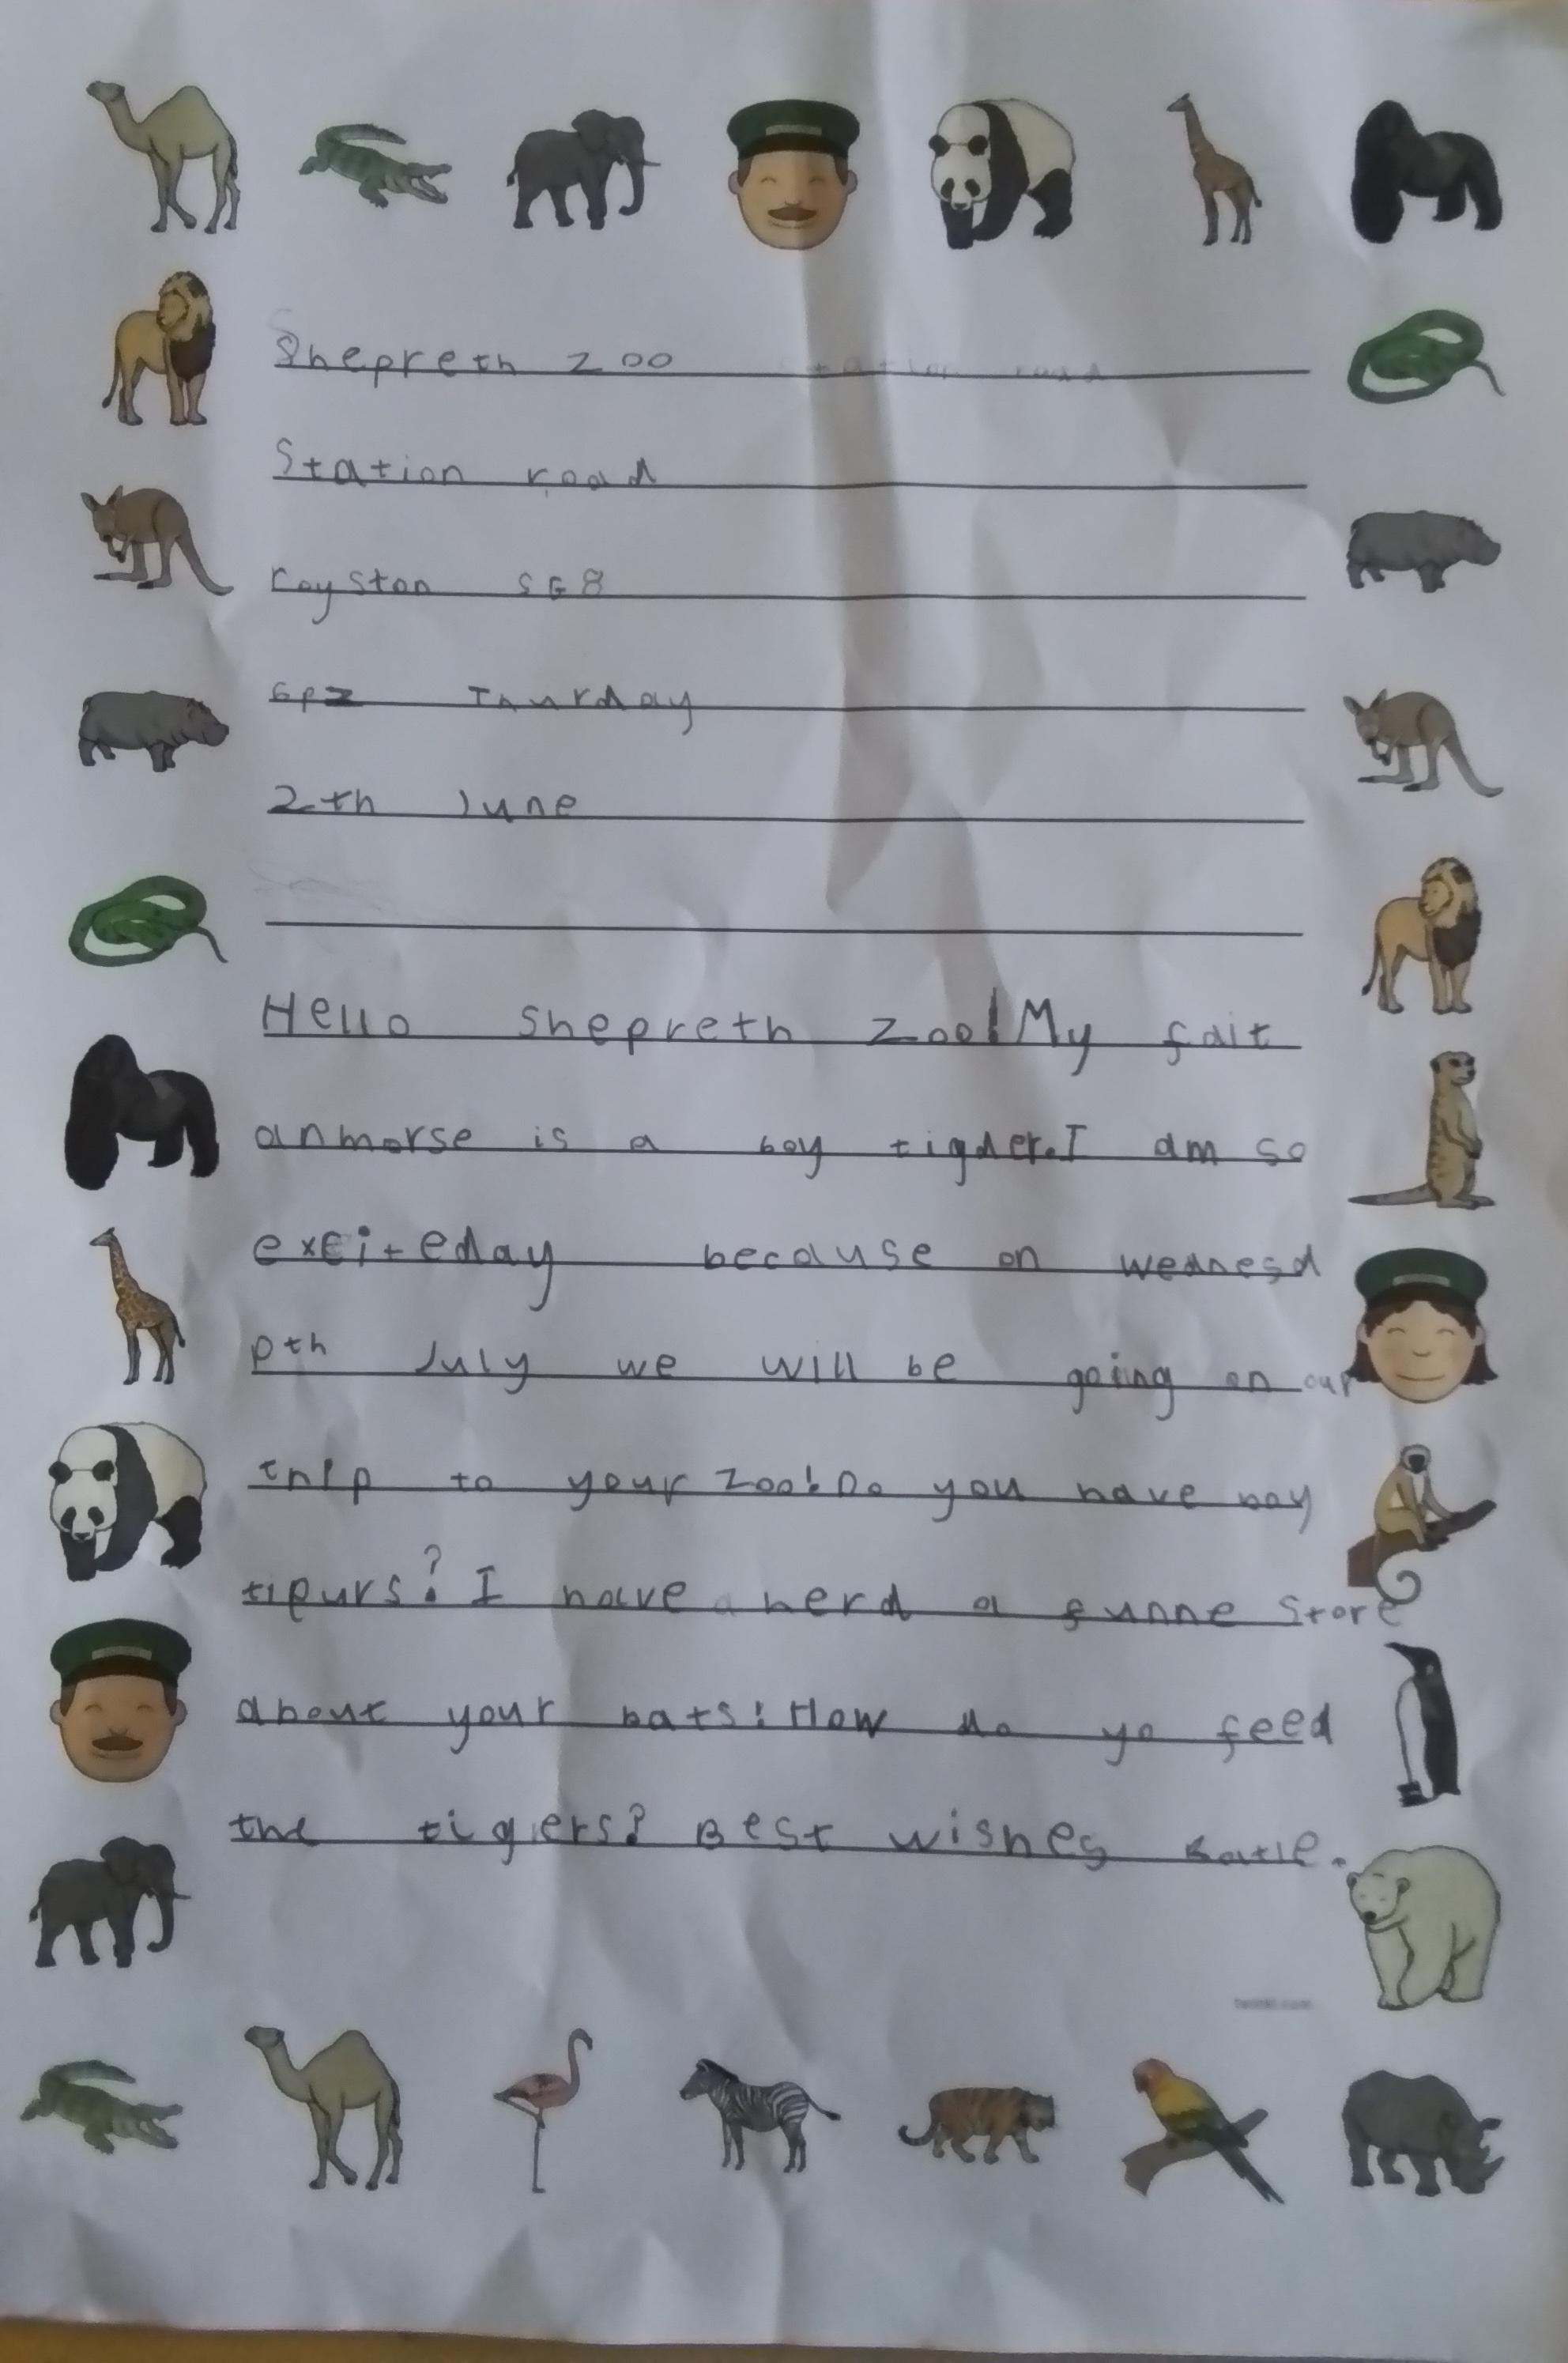 Shepreth zoo station road
Station road
royston SG8
6pz Thurday
2th June
Hello shepreth zoo! My fait
anmorse is a boy tigder. I am so
exciteday because on wednesd
pth July we will be going on our
tnip to your zoo! Do you have bay
tipurs? I have a herd a funne store
about your bats! How do yo feed
the tigers? Best wishes Katie.
twinkl.com